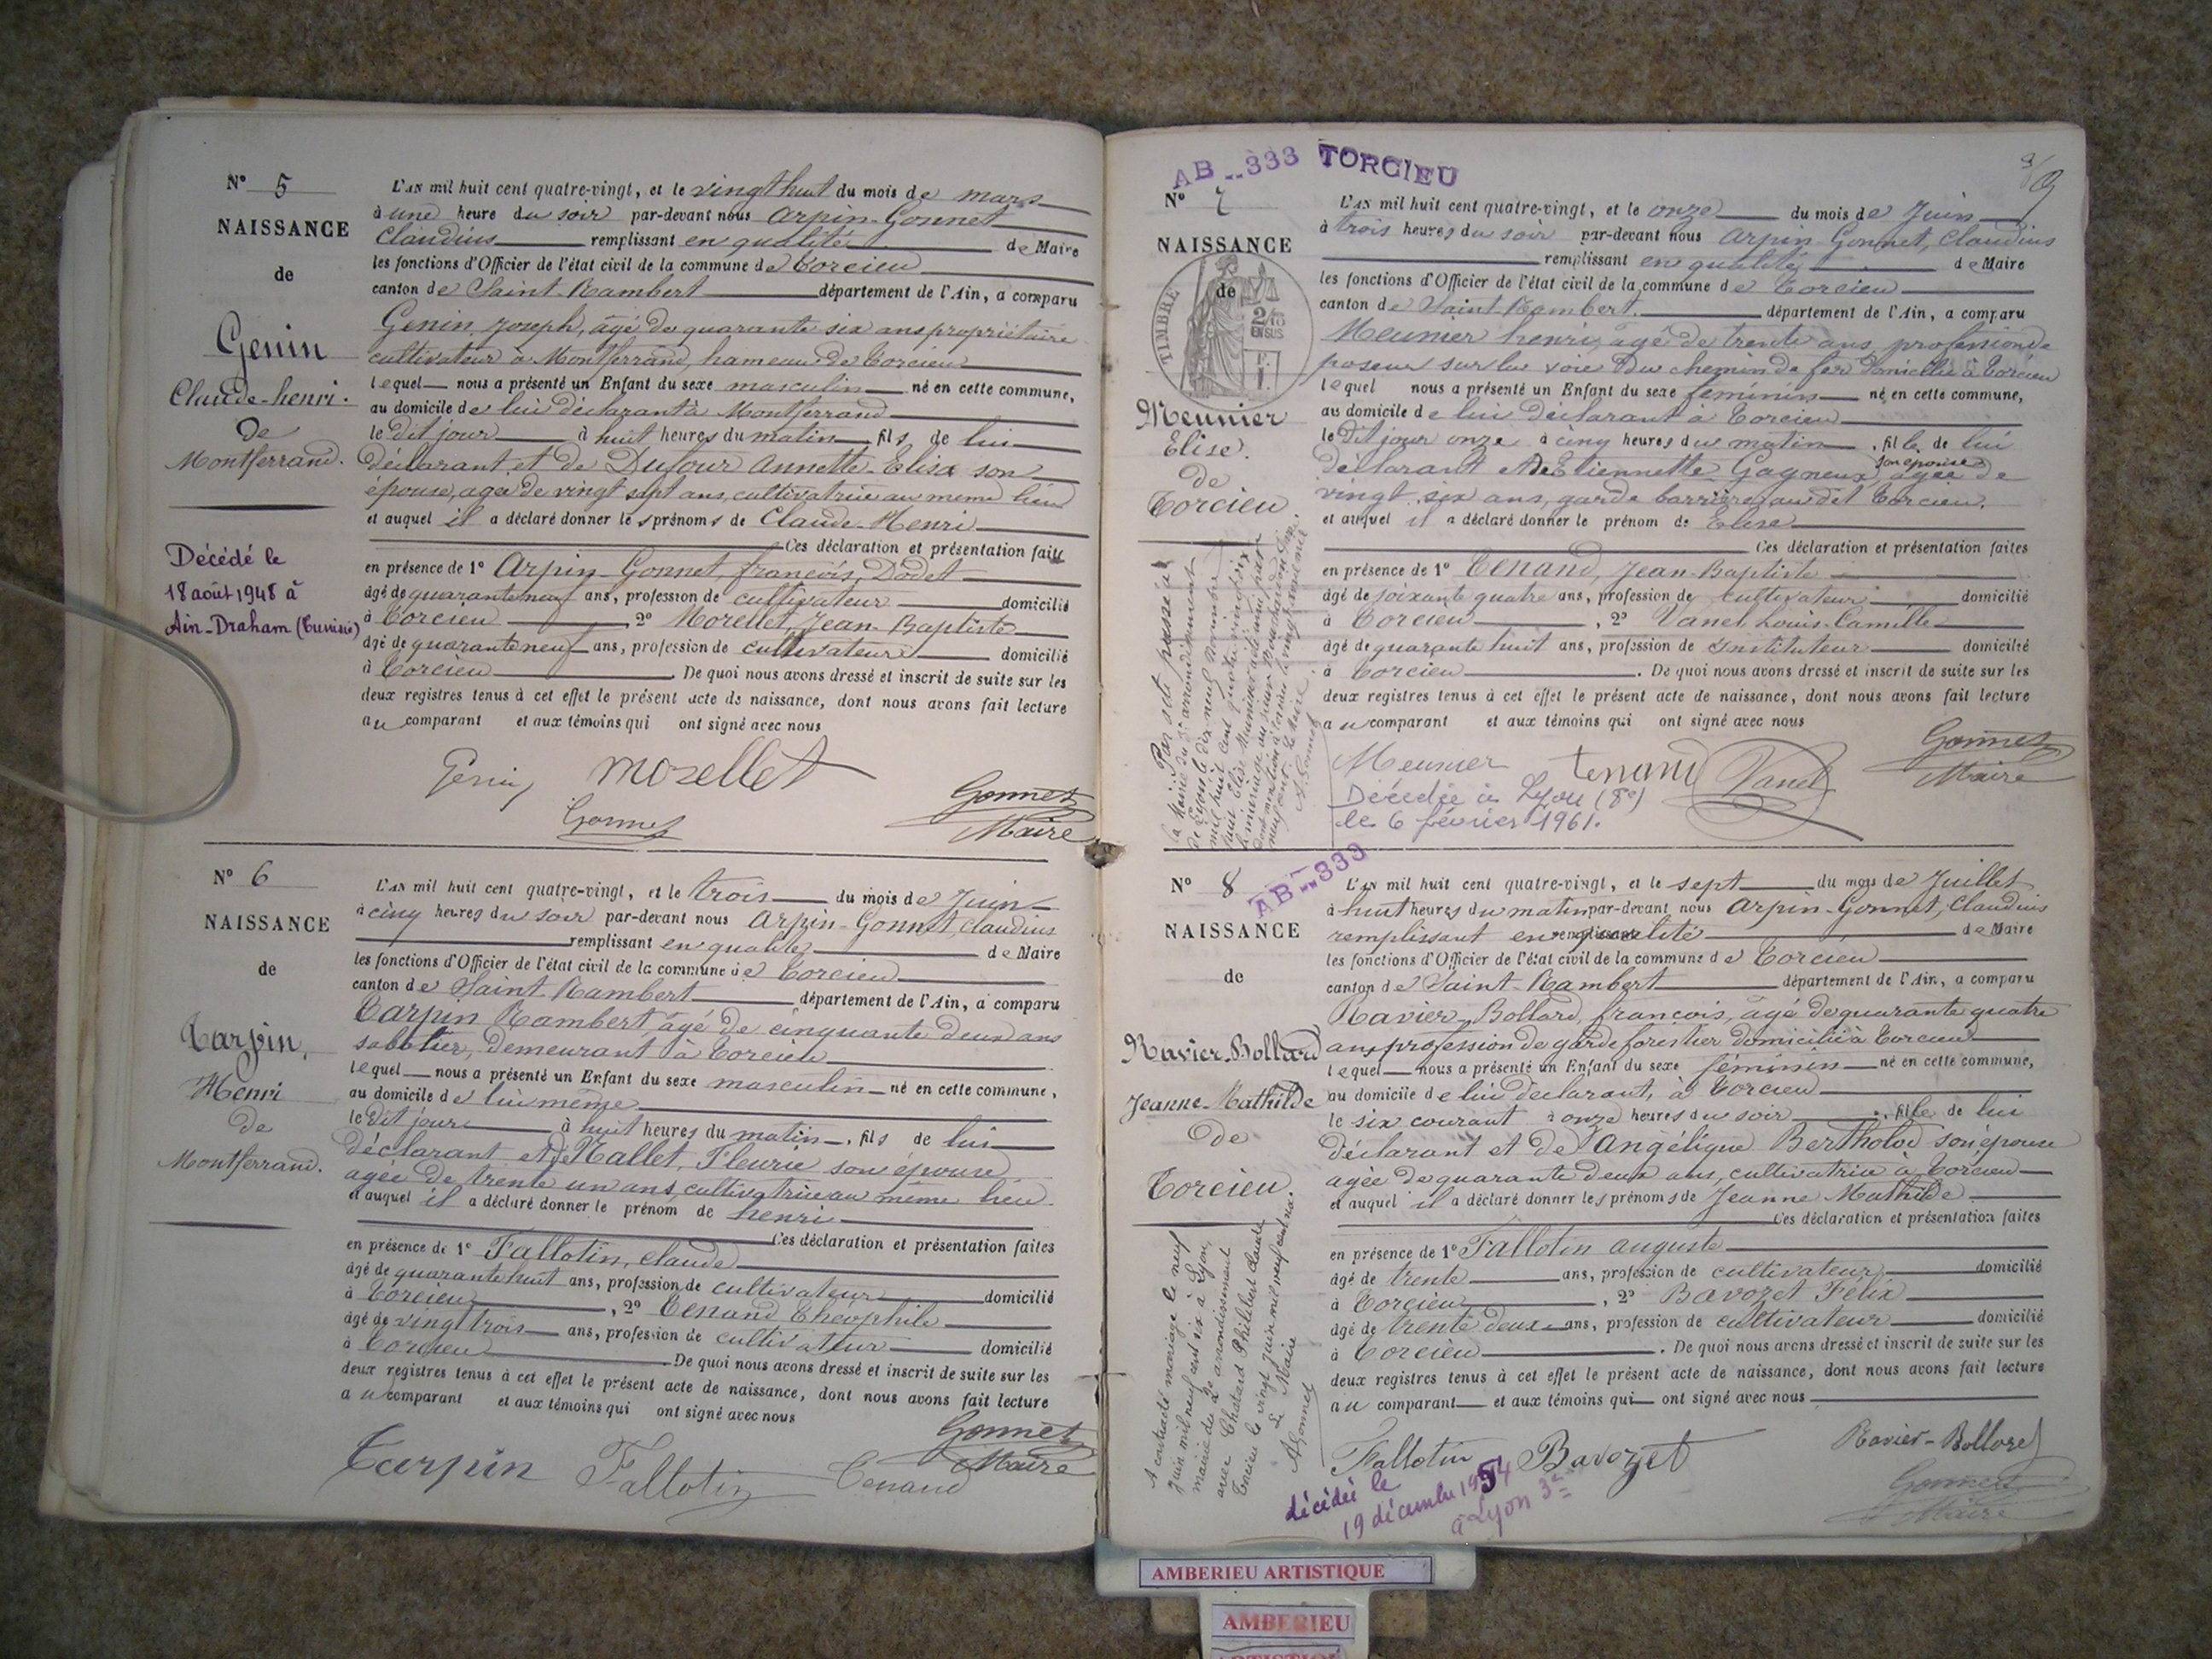 N° 5
NAISSANCE
de
Genin
Claude-henri.
De
Montferrand.
Décédé le
18 août 1948 à
Ain-Draham (Tunisie)
L'AN mil huit cent quatre-vingt, et le vingt huit du mois de mars
à une heure du soir par-devant nous Arpin-Gonnet
Claudius remplissant en qualité de Maire
les fonctions d'Officier de l'état civil de la commune de Torcieu
canton de Saint-Rambert département de l'Ain, a comparu
Genin, Joseph, âgé de quarante six ans propriétaire
cultivateur à Montferrand, hameau de Torcieu
lequel nous a présenté un Enfant du sexe masculin né en cette commune,
au domicile de lui déclarant à Montferrand
le dit jour à huit heures du matin fils de lui
déclarant et de Dufour Annette-Elisa son
épouse, agée de vingt sept ans, cultivatrice au même lieu
et auquel il a déclaré donner les prénoms de Claude-Henri
Ces déclaration et présentation faites
en présence de 1° Arpin-Gonnet, françois, Dodet
âgé de quarante neuf ans, profession de cultivateur domicilié
à Torcieu 2° Morellet, Jean-Baptiste
âgé de quarante neuf ans, profession de cultivateur domicilié
à Torcieu. De quoi nous avons dressé et inscrit de suite sur les
deux registres tenus à cet effet le présent acte de naissance, dont nous avons fait lecture
au comparant et aux témoins qui ont signé avec nous
Genin Morellet
Gonnet
Gonnet
Maire
N° 6
NAISSANCE
de
Tarpin,
Henri
de
Montferrand.
L'AN mil huit cent quatre-vingt, et le trois du mois de Juin
à cinq heures du soir par-devant nous Arpin-Gonnet, Claudius
remplissant en qualité de Maire
les fonctions d'Officier de l'état civil de la commune de Torcieu
canton de Saint-Rambert département de l'Ain, a comparu
Tarpin Rambert âgé de cinquante deux ans
sabotier, demeurant à Torcieu
lequel nous a présenté un Enfant du sexe masculin né en cette commune,
au domicile de lui même
le dit jour à huit heures du matin, fils de lui
déclarant et de Nallet, Fleurie son épouse
agée de trente un ans, cultivatrice au même lieu
et auquel il a déclaré donner le prénom de henri
Ces déclaration et présentation faites
en présence de 1° Fallotin, Claude
âgé de quarante huit ans, profession de cultivateur domicilié
à Torcieu, 2° Tenand Théophile
âgé de vingt trois ans, profession de cultivateur domicilié
à Torcieu De quoi nous avons dressé et inscrit de suite sur les
deux registres tenus à cet effet le présent acte de naissance, dont nous avons fait lecture
au comparant et aux témoins qui ont signé avec nous
Tarpin Fallotin Tenand
Gonnet
Maire
AB..333 TORCIEU
N° 7
NAISSANCE
de
TIMBRE
Meunier
Elise.
de
Torcieu.
L'AN mil huit cent quatre-vingt, et le onze du mois de Juin
à trois heures du soir par-devant nous Arpin-Gonnet, Claudius
remplissant en qualité de Maire
les fonctions d'Officier de l'état civil de la commune de Torcieu
canton de Saint-Rambert. département de l'Ain, a comparu
Meunier henri, âgé de trente ans, profession de
poseur sur la voie du chemin de fer domicilié à Torcieu
lequel nous a présenté un Enfant du sexe féminin né en cette commune,
au domicile de lui déclarant à Torcieu
le dit jour onze à cinq heures du matin, fille de lui
déclarant et de Etiennette Gagneux, son épouse agée de
vingt six ans, garde barrière au dit Torcieu.
et auquel il a déclaré donner le prénom de Elise
Ces déclaration et présentation faites
en présence de 1° Tenand, Jean-Baptiste
âgé de soixante quatre ans, profession de cultivateur domicilié
à Torcieu, 2° Vanel Louis-Camille
âgé de quarante huit ans, profession de Instituteur domicilié
à Torcieu. De quoi nous avons dressé et inscrit de suite sur les
deux registres tenus à cet effet le présent acte de naissance, dont nous avons fait lecture
au comparant et aux témoins qui ont signé avec nous
Meunier Tenand Vanel
Gonnet
Maire
Décédée à Lyon (8e)
le 6 février 1961.
Par acte passé à
la Mairie du 3e arrondissement
de Lyon le dix neuf novembre
mil huit cent quatre vingt dix
N° 8
AB..333
NAISSANCE
de
Ravier-Bollard
Jeanne-Mathilde
de
Torcieu.
L'AN mil huit cent quatre-vingt, et le sept du mois de Juillet
à huit heures du matin par-devant nous Arpin-Gonnet, Claudius
remplissant en qualité de Maire
les fonctions d'Officier de l'état civil de la commune de Torcieu
canton de Saint-Rambert département de l'Ain, a comparu
Ravier-Bollard, françois, âgé de quarante quatre
ans, profession de garde forestier domicilié à Torcieu
lequel nous a présenté un Enfant du sexe féminin né en cette commune,
au domicile de lui déclarant, à Torcieu
le six courant à onze heures du soir, fille de lui
déclarant et de Angélique Bertholod son épouse
agée de quarante deux ans, cultivatrice à Torcieu
et auquel il a déclaré donner les prénoms de Jeanne Mathilde
Ces déclaration et présentation faites
en présence de 1° Fallotin auguste
âgé de trente ans, profession de cultivateur domicilié
à Torcieu, 2° Bavozet Félix
âgé de trente deux ans, profession de cultivateur domicilié
à Torcieu. De quoi nous avons dressé et inscrit de suite sur les
deux registres tenus à cet effet le présent acte de naissance, dont nous avons fait lecture
au comparant et aux témoins qui ont signé avec nous
Fallotin Bavozet Ravier-Bollard
Gonnet
Maire
A contracté mariage le neuf
Juin mil neuf cent six à Lyon,
mairie du 2e arrondissement
avec Chatard Philibert Claude
Torcieu le vingt Juin mil neuf cent six.
Le Maire
AGonnet
décédée le
19 décembre 1954
à Lyon 3e
AMBERIEU ARTISTIQUE
AMBERIEU
ARTISTIQUE